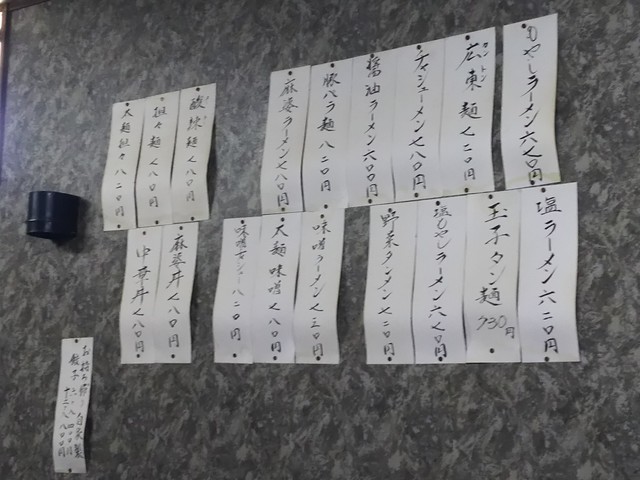 もやしラーメン六七〇円
広東麺七二〇円
カントン
チャシューメン七八〇円
醤油ラーメン六〇〇円
豚バラ麺八二〇円
麻婆ラーメン七八〇円
酸辣麺七八〇円
担々麺七八〇円
太麺担々八二〇円
塩ラーメン六二〇円
玉子タン麺730円
塩もやしラーメン六七〇円
野菜タンメン七二〇円
味噌ラーメン七三〇円
太麺味噌七八〇円
味噌チャシュー八二〇円
麻婆丼七八〇円
中華丼七八〇円
お持ち帰り自家製
餃子